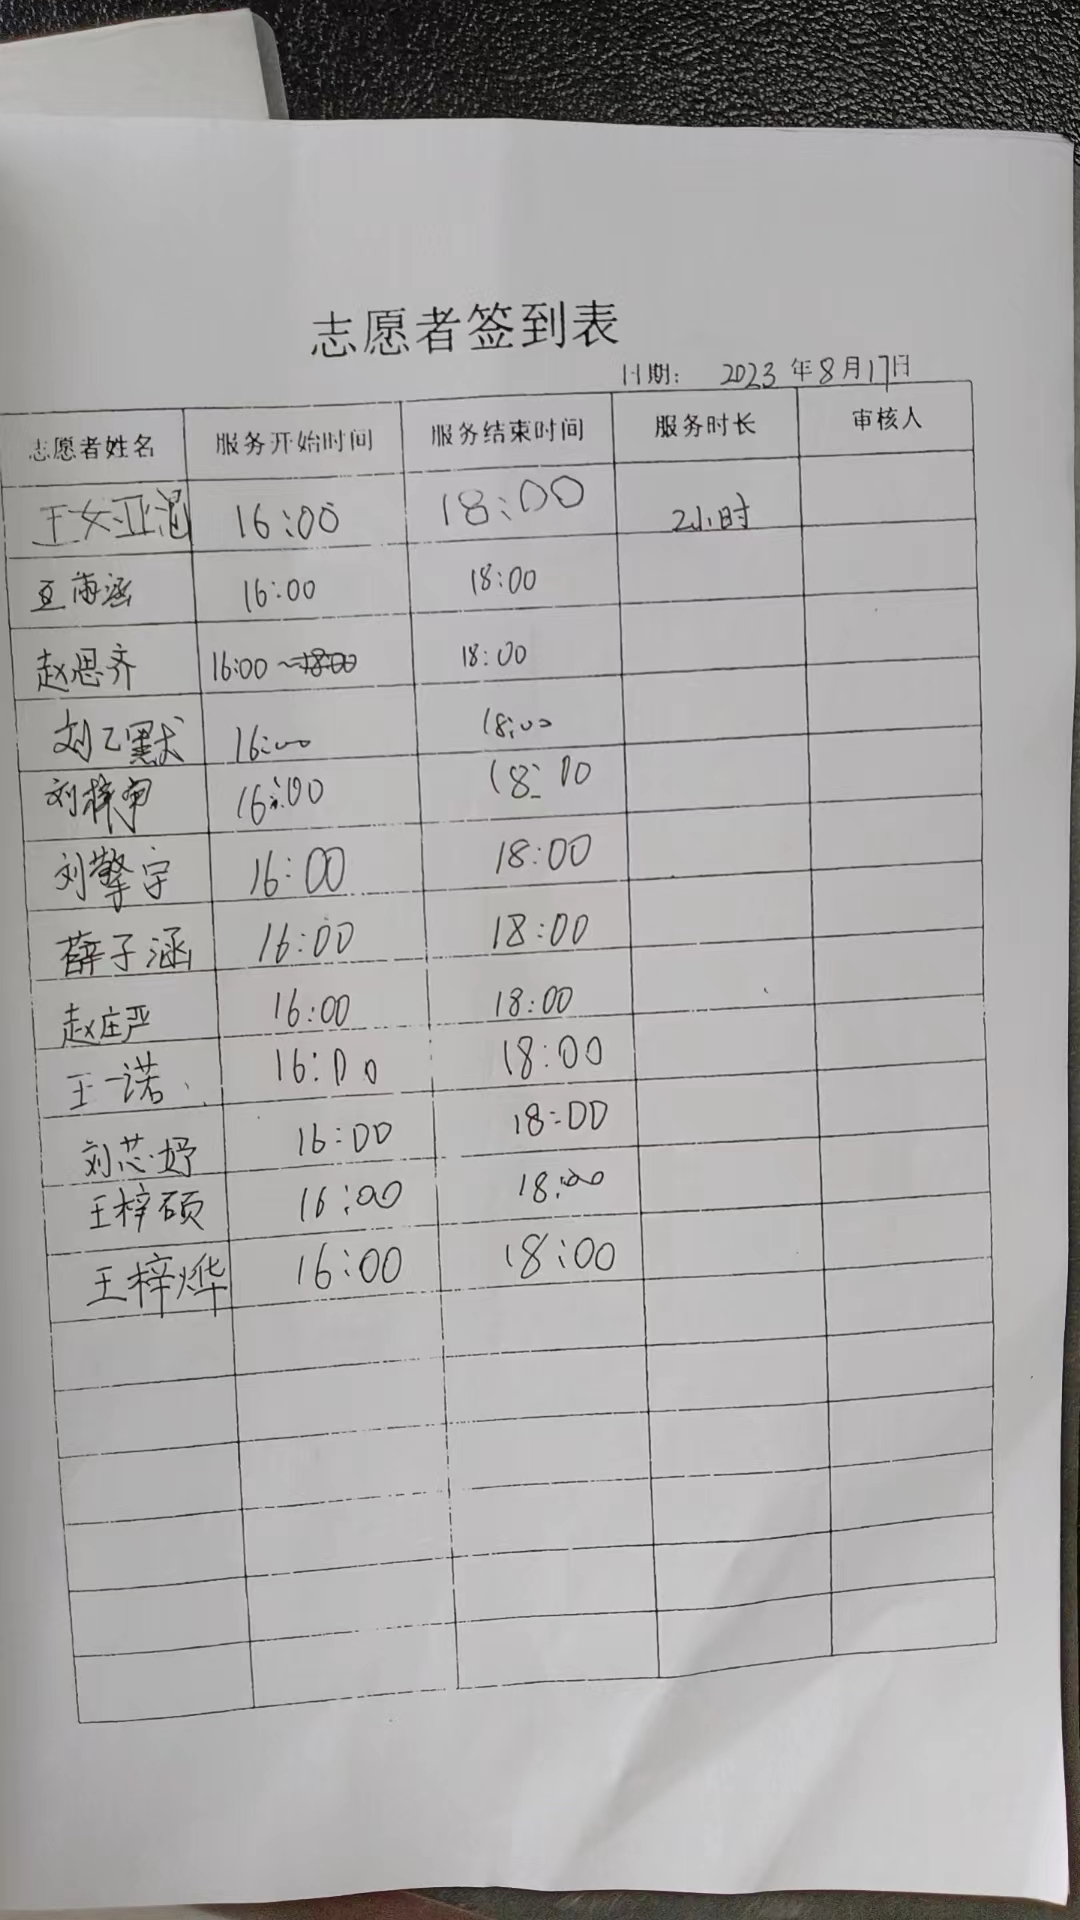 志愿者签到表
日期： 2023 年 8 月 17 日
志愿者姓名 服务开始时间 服务结束时间 服务时长 审核人
王女亚涵 16:00 18:00 2小时
海涵 16:00 18:00
赵思齐 16:00 ~18:00 18:00
刘乙默 16:00 18:00
刘梓 16:00 18:00
刘擎宇 16:00 18:00
薛子涵 16:00 18:00
赵庄严 16:00 18:00
王一诺 16:00 18:00
刘芯妤 16:00 18:00
王梓硕 16:00 18:00
王梓烨 16:00 18:00